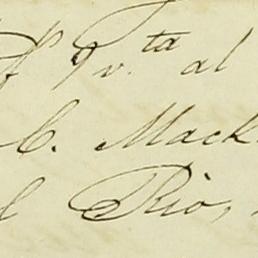 P. Pv.ta al
C. Mack
l Rio,